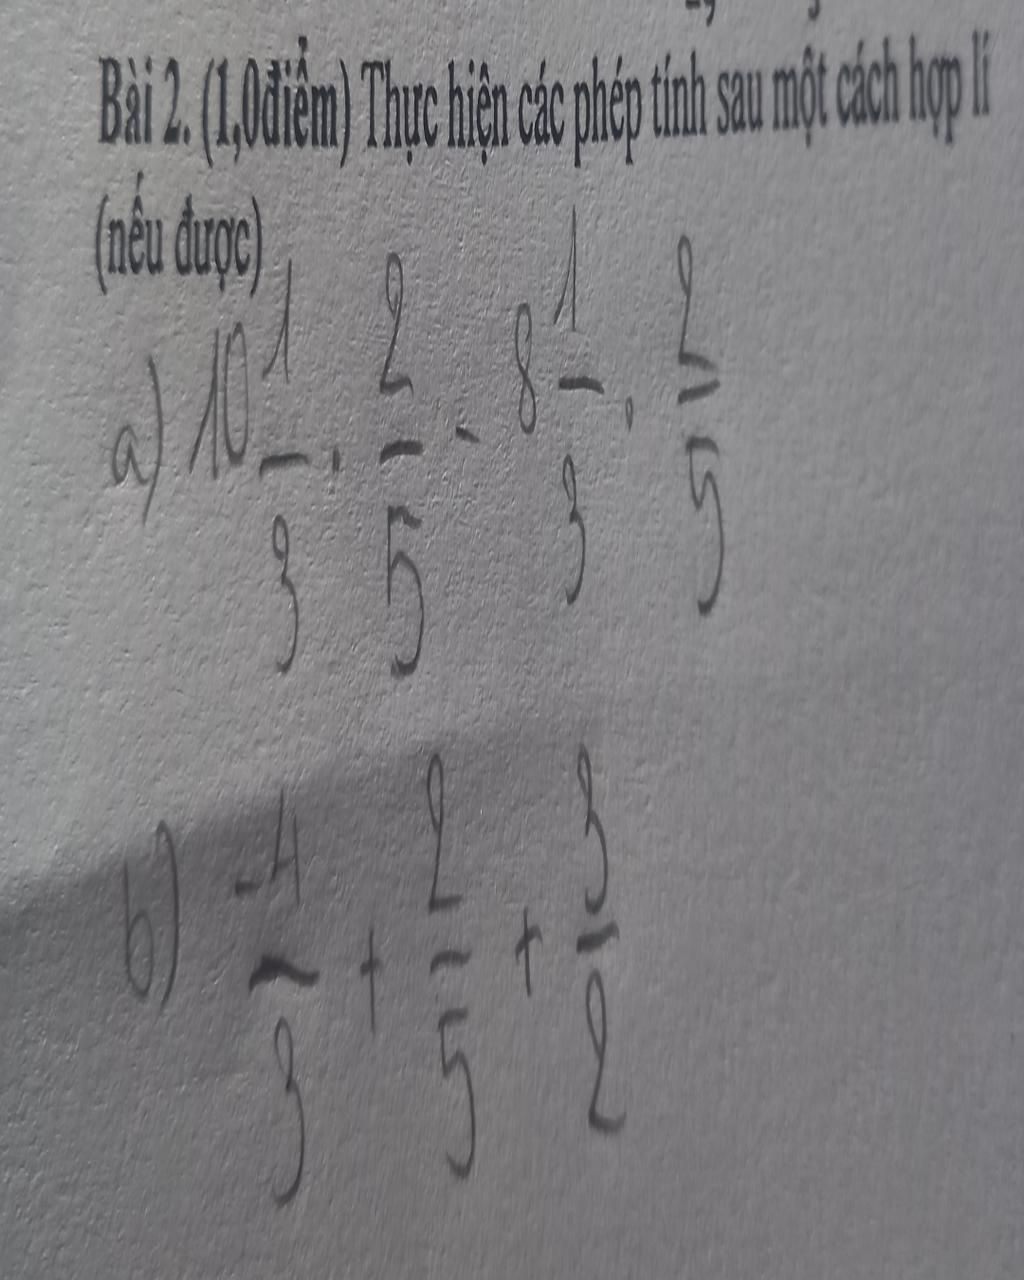 Bài 2. (1,0điểm) Thực hiện các phép tính sau một cách hợp lí
(nếu được)
a) 10 1/3 . 2/5 - 8 1/3 . 2/5
b) -1/3 + 2/5 + 3/2